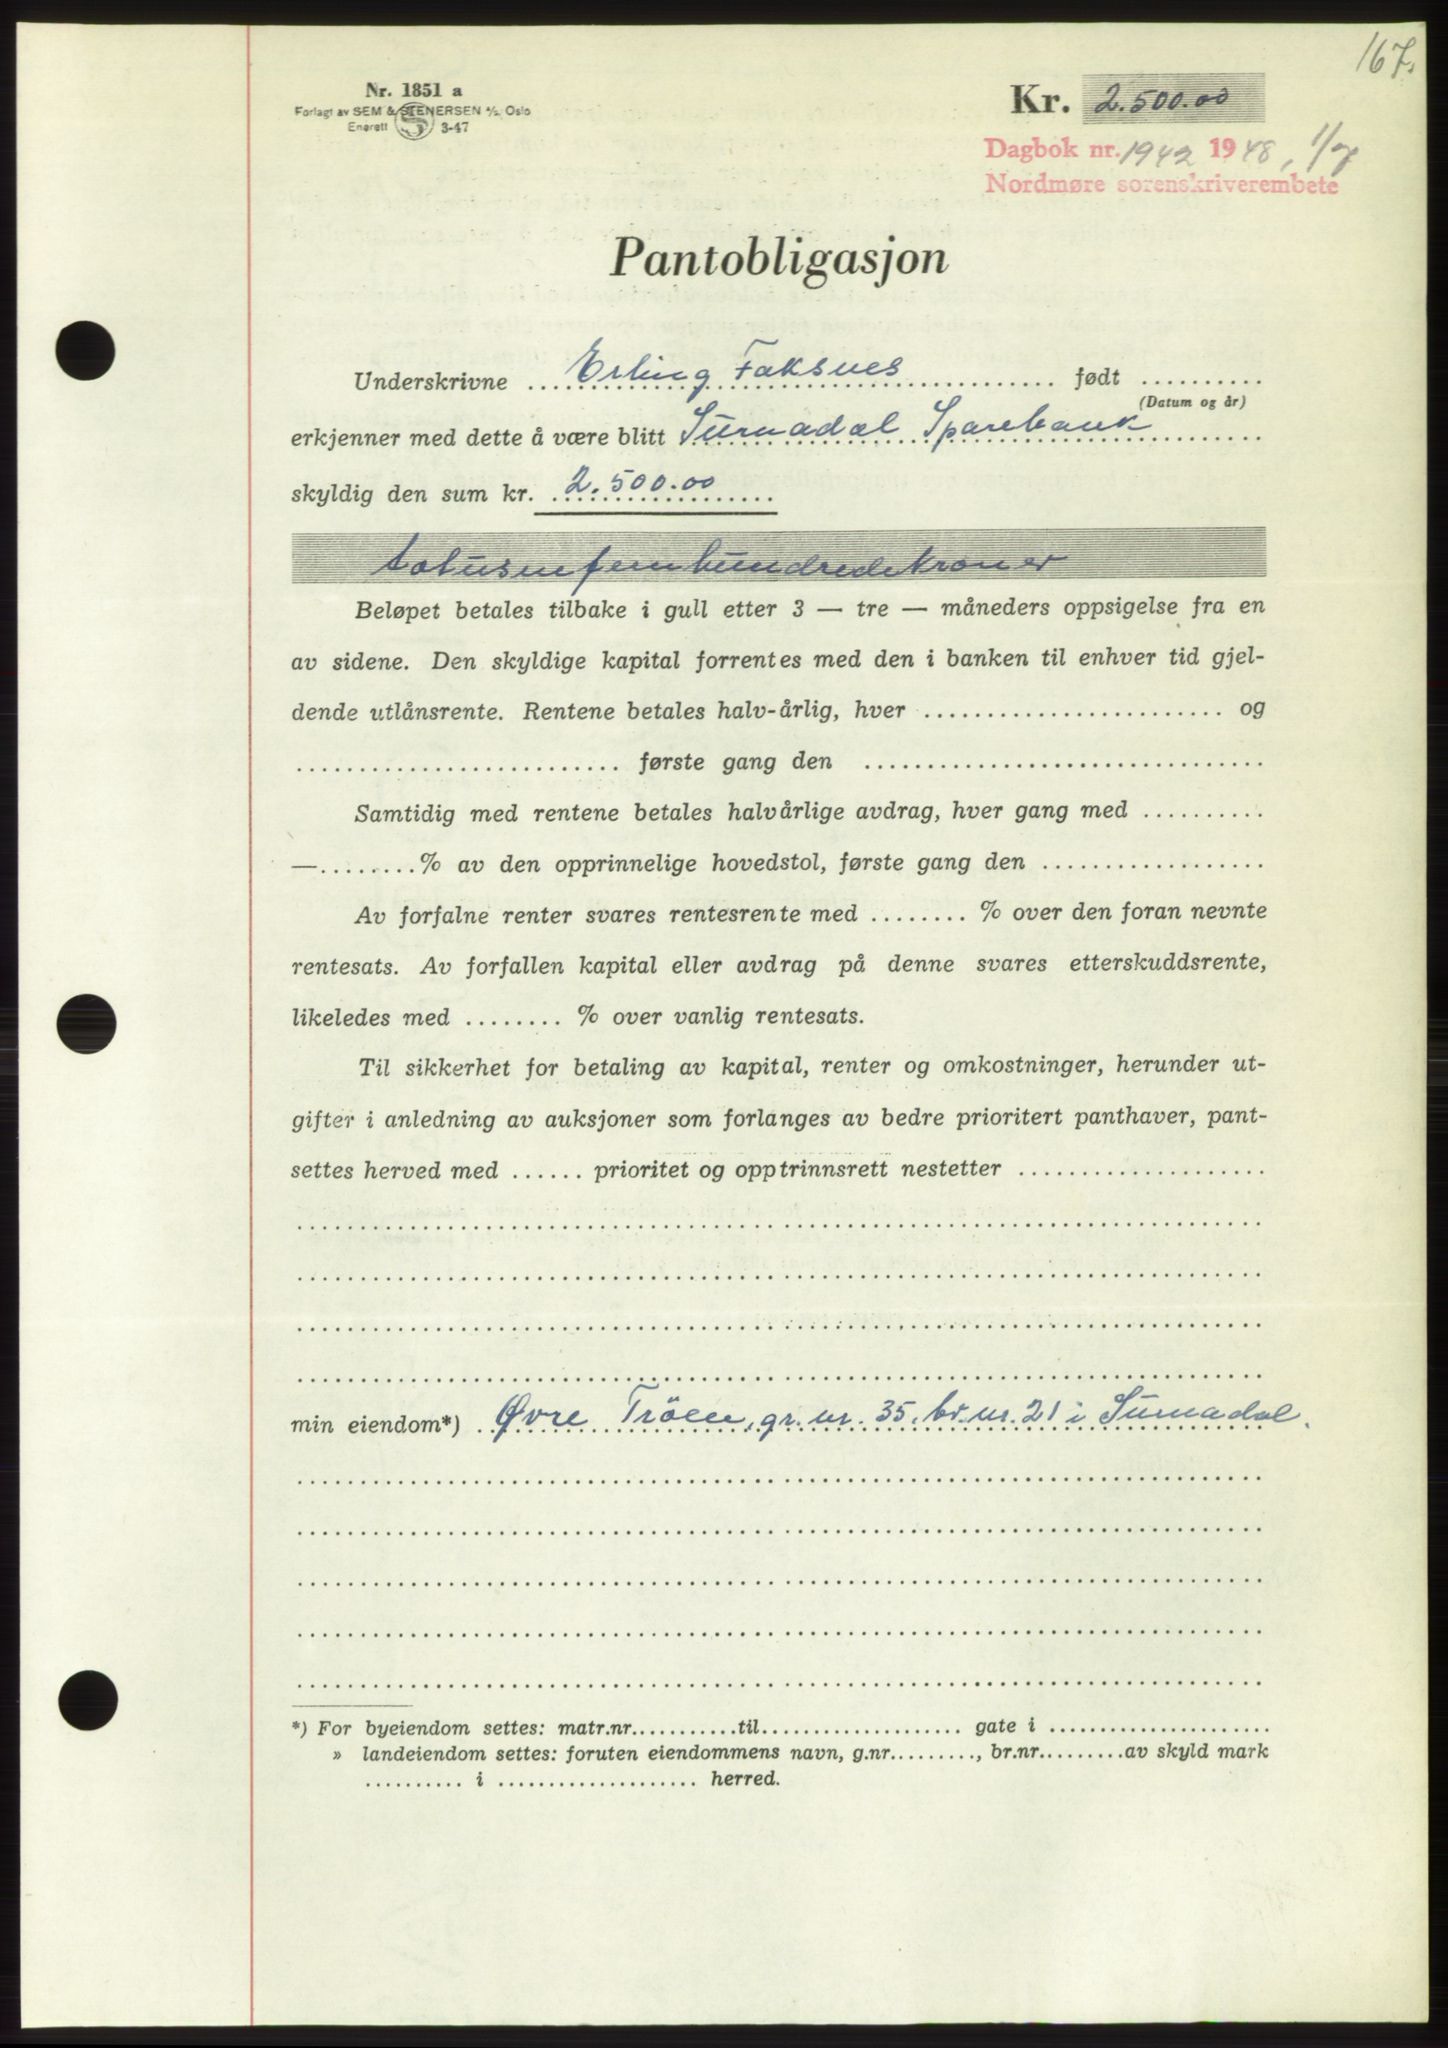 167.
Nr. 1851 a
Forlagt av SEM & STENERSEN A/S, Oslo
Enerett 3-47
Kr. 2.500.00
Dagbok nr. 1942 1948, 1/9
Nordmøre sorenskriverembete
Pantobligasjon
Underskrivne Erling Faksnes født ..........
(Datum og år)
erkjenner med dette å være blitt Surnadal Sparebank
skyldig den sum kr. 2.500.00
totusenfemhundredekroner
Beløpet betales tilbake i gull etter 3 — tre — måneders oppsigelse fra en
av sidene. Den skyldige kapital forrentes med den i banken til enhver tid gjel-
dende utlånsrente. Rentene betales halv-årlig, hver .......... og
.......... første gang den ..........
Samtidig med rentene betales halvårlige avdrag, hver gang med ..........
— ........% av den opprinnelige hovedstol, første gang den ..........
Av forfalne renter svares rentesrente med ........ % over den foran nevnte
rentesats. Av forfallen kapital eller avdrag på denne svares etterskuddsrente,
likeledes med ........ % over vanlig rentesats.
Til sikkerhet for betaling av kapital, renter og omkostninger, herunder ut-
gifter i anledning av auksjoner som forlanges av bedre prioritert panthaver, pant-
settes herved med ...... prioritet og opptrinnsrett nestetter ..........
min eiendom*) Øvre Tröen, gr. nr. 35, br. nr. 21 i Surnadal.
*) For byeiendom settes: matr.nr...........til.......... gate i ..........
» landeiendom settes: foruten eiendommens navn, g.nr.........., br.nr.........av skyld mark
.......... i .......... herred.